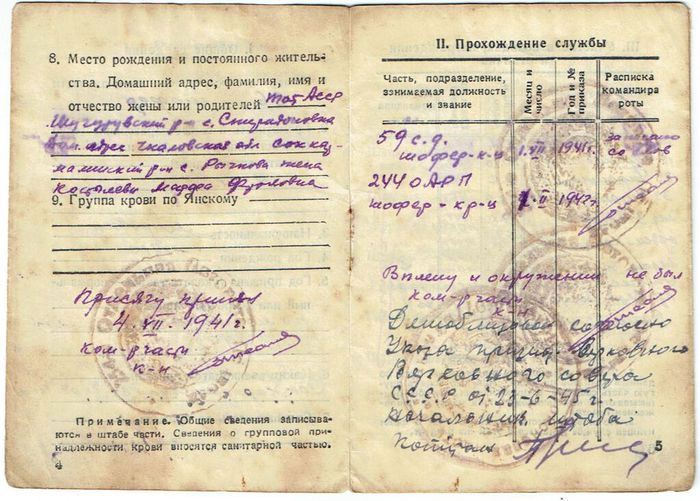 8. Место рождения и постоянного житель-
ства. Домашний адрес, фамилия, имя и
отчество жены или родителей Тат Асср
Шугуровский р-н с. Спиридоновка
адрес Чкаловская обл Сок-кар
малинский р-н с. Рычкова жена
Костылева Марфа Фроловна
9. Группа крови по Янскому
Присягу принял
4. VII. 1941 г.
ком-р части
к-н
Примечание. Общие сведения записыва-
ются в штабе части. Сведения о групповой при-
надлежности крови вносятся санитарной частью.
4
II. Прохождение службы
Часть, подразделение,
занимаемая должность
и звание
Месяц и
число
Год и №
приказа
Расписка
командира
роты
59 с.д.
шофер-к-ц 1.VII 1941 г. со слов
244 ОАРП
шофер-кр-ц 1.II 1942 г.
В плену и окружении не был
ком-р части
к-н
Демобилизован согласно
Указа Верховного
Верховного совета
СССР от 23-6-45 г.
Начальник штаба
капитан
5